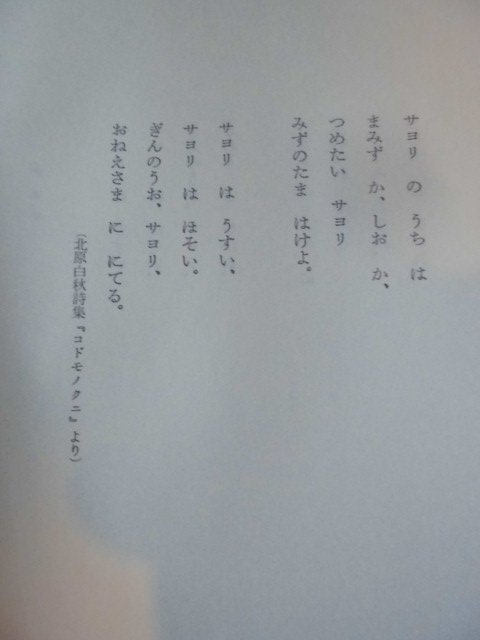 サヨリ の うち は
まみず か、しお か、
つめたい サヨリ
みずのたま はけよ。
サヨリ は うすい、
サヨリ は ほそい。
ぎんのうお、サヨリ、
おねえさま に にてる。
(北原白秋詩集『コドモノクニ』より)